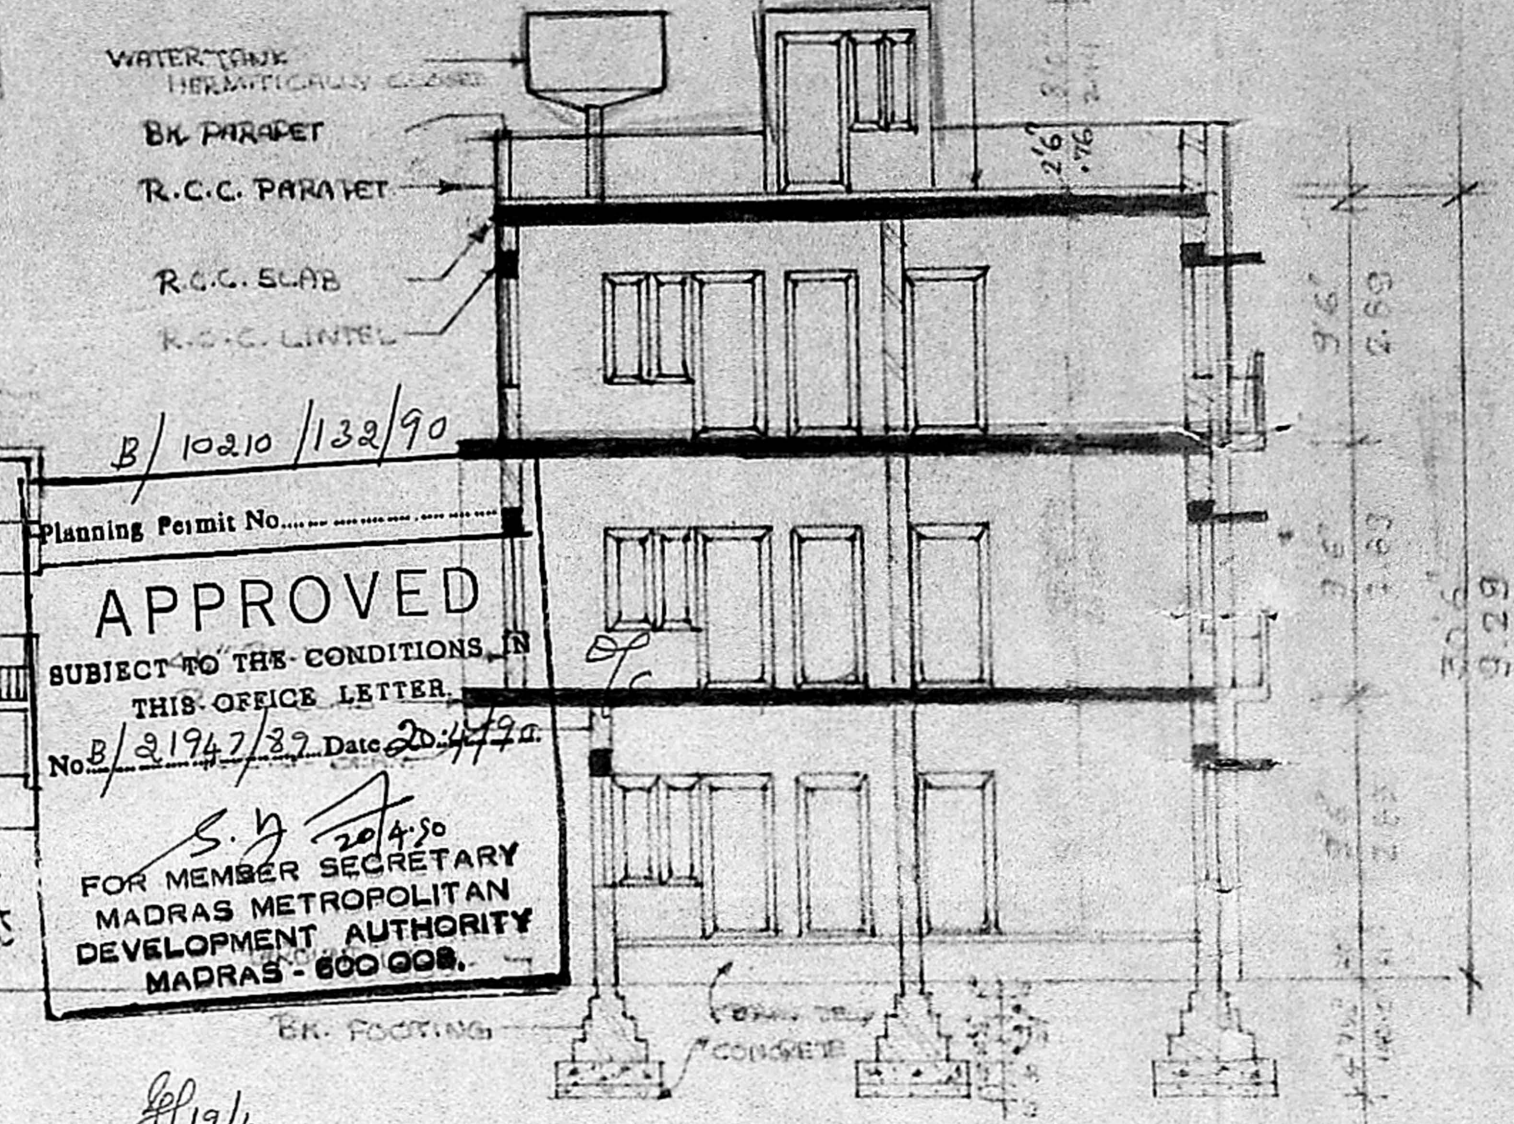 WATER TANK
HERMITICALLY CLOSED
BK PARAPET
R.C.C. PARAPET
R.C.C. SLAB
R.C.C. LINTEL
2'6"
.76
9'6"
2.89
9'6"
2.89
30'6"
9.29
B/10210/132/90
Planning Permit No.
APPROVED
SUBJECT TO THE CONDITIONS IN
THIS OFFICE LETTER.
No. B/21947/89 Date 20.4.90.
S.
20/4.90
FOR MEMBER SECRETARY
MADRAS METROPOLITAN
DEVELOPMENT AUTHORITY
MADRAS - 600 008.
BK. FOOTING
CONCRETE